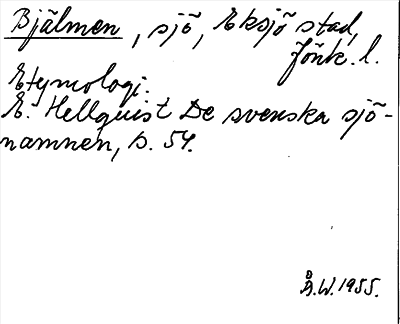 Bjälmen, sjö, Eksjö stad,
Jönk. l.
Etymologi.
E. Hellquist De svenska sjö-
namnen, s. 54.
Å.W. 1955.